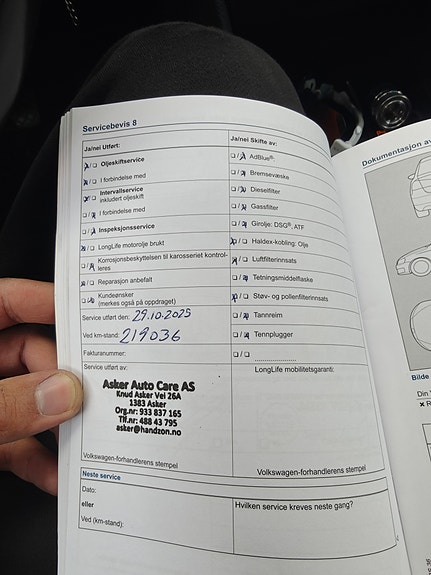 Servicebevis 8
Ja/nei Utført:
Oljeskiftservice
I forbindelse med
Intervallservice
inkludert oljeskift
I forbindelse med
Inspeksjonsservice
LongLife motorolje brukt
Korrosjonsbeskyttelsen til karosseriet kontrol-
leres
Reparasjon anbefalt
Kundeønsker
(merkes også på oppdraget)
Service utført den: 29.10.2025
Ved km-stand: 219036
Fakturanummer:
Service utført av:
Asker Auto Care AS
Knud Asker Vei 26A
1383 Asker
Org.nr: 933 837 165
Tlf.nr: 488 43 795
asker@handzon.no
Volkswagen-forhandlerens stempel
Ja/nei Skifte av:
AdBlue®
Bremsevæske
Dieselfilter
Gassfilter
Girolje: DSG®, ATF
Haldex-kobling: Olje
Luftfilterinnsats
Tetningsmiddelflaske
Støv- og pollenfilterinnsats
Tannreim
Tennplugger
LongLife mobilitetsgaranti:
Volkswagen-forhandlerens stempel
Neste service
Dato:
eller
Ved (km-stand):
Hvilken service kreves neste gang?
Dokumentasjon av
Bilde
Din